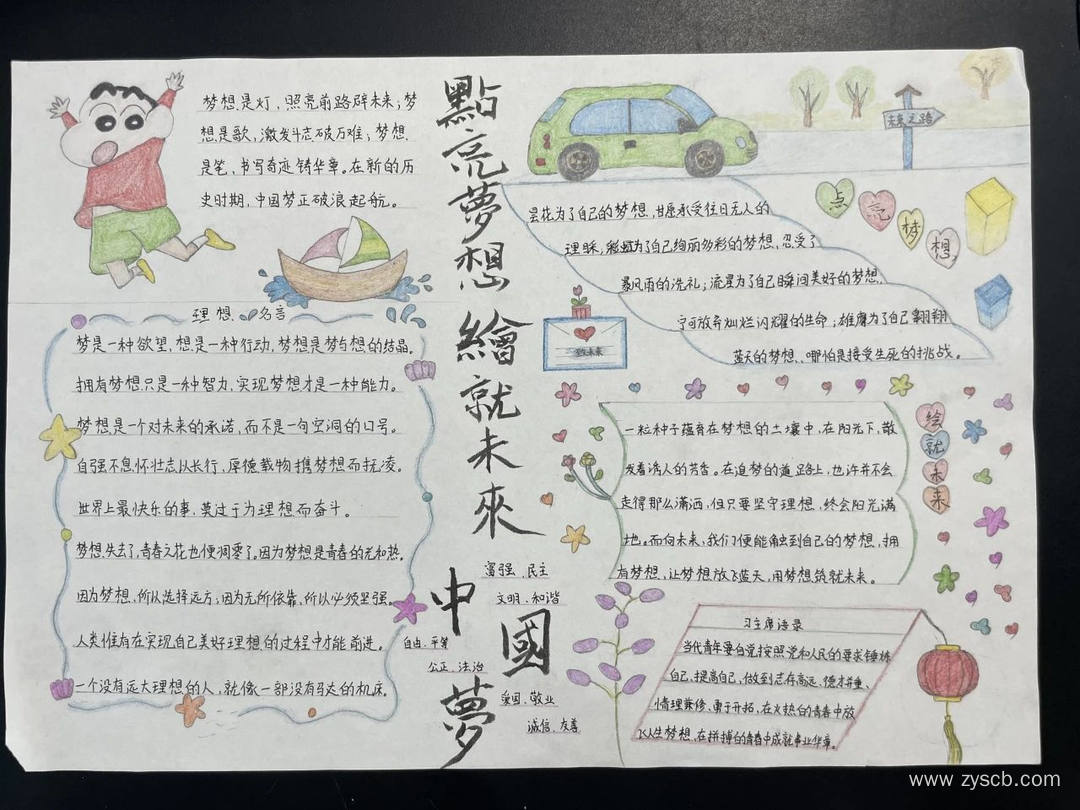 點亮夢想 繪就未來
中國夢
梦想是灯，照亮前路辟未来；梦
想是歌，激发斗志破万难；梦想
是笔，书写奇迹铸华章。在新的历
史时期，中国梦正破浪起航。
理想、名言
梦是一种欲望，想是一种行动，梦想是梦与想的结晶。
拥有梦想只是一种智力，实现梦想才是一种能力。
梦想是一个对未来的承诺，而不是一句空洞的口号。
自强不息怀壮志以长行，厚德载物携梦想而抚凌。
世界上最快乐的事，莫过于为理想而奋斗。
梦想失去了，青春之花也便凋零了。因为梦想是青春的光和热。
因为梦想，所以选择远方；因为无所依靠，所以必须坚强。
人类惟有在实现自己美好理想的过程中才能前进。
一个没有远大理想的人，就像一部没有马达的机床。
富强、民主
文明、和谐
自由、平等
公正、法治
爱国、敬业
诚信、友善
未来之路
点亮梦想
昙花为了自己的梦想，甘愿承受往日无人的
理睬；彩虹为了自己绚丽多彩的梦想，忍受了
暴风雨的洗礼；流星为了自己瞬间美好的梦想，
宁可放弃灿烂闪耀的生命；雄鹰为了自己翱翔
蓝天的梦想、哪怕是接受生死的挑战。
致未来
绘就未来
一粒种子蕴育在梦想的土壤中，在阳光下，散
发着诱人的芳香。在追梦的道路上，也许并不会
走得那么潇洒，但只要坚守理想，终会阳光满
地。而向未来，我们便能触到自己的梦想，拥
有梦想，让梦想放飞蓝天，用梦想筑就未来。
习主席语录
当代青年要自觉按照党和人民的要求锤炼
自己、提高自己，做到志存高远、德才并重、
情理兼修、勇于开拓，在火热的青春中放
飞人生梦想，在拼搏的青春中成就事业华章。
www.zyscb.com